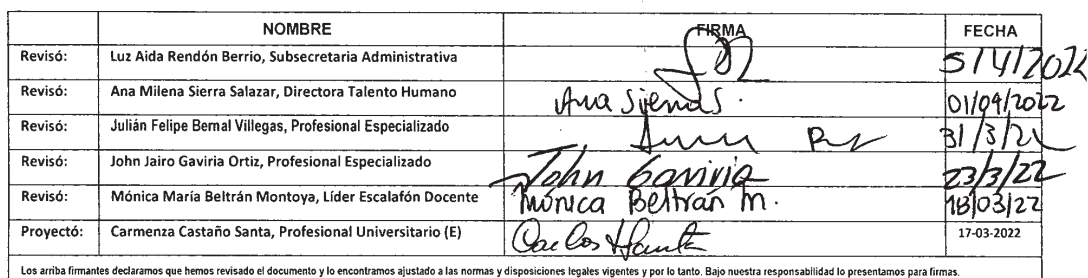 NOMBRE FIRMA FECHA
Revisó: Luz Aida Rendón Berrio, Subsecretaria Administrativa 5/4/2022
Revisó: Ana Milena Sierra Salazar, Directora Talento Humano Ana Sierra S. 01/04/2022
Revisó: Julián Felipe Bernal Villegas, Profesional Especializado 31/3/22
Revisó: John Jairo Gaviria Ortiz, Profesional Especializado John Gaviria 23/3/22
Revisó: Mónica María Beltrán Montoya, Líder Escalafón Docente Mónica Beltrán M. 18/03/22
Proyectó: Carmenza Castaño Santa, Profesional Universitario (E) 17-03-2022
Los arriba firmantes declaramos que hemos revisado el documento y lo encontramos ajustado a las normas y disposiciones legales vigentes y por lo tanto. Bajo nuestra responsabilidad lo presentamos para firmas.